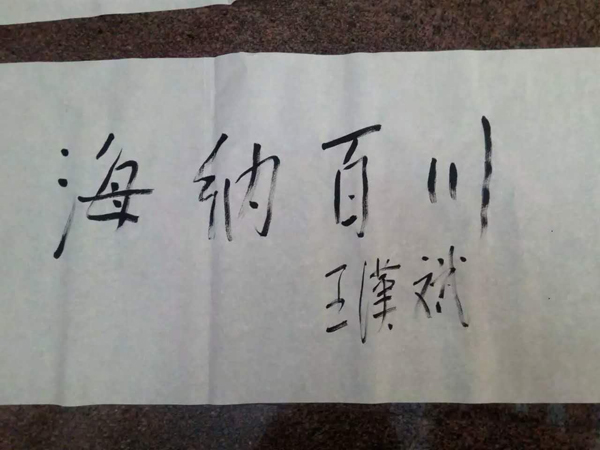 海纳百川
王漢斌